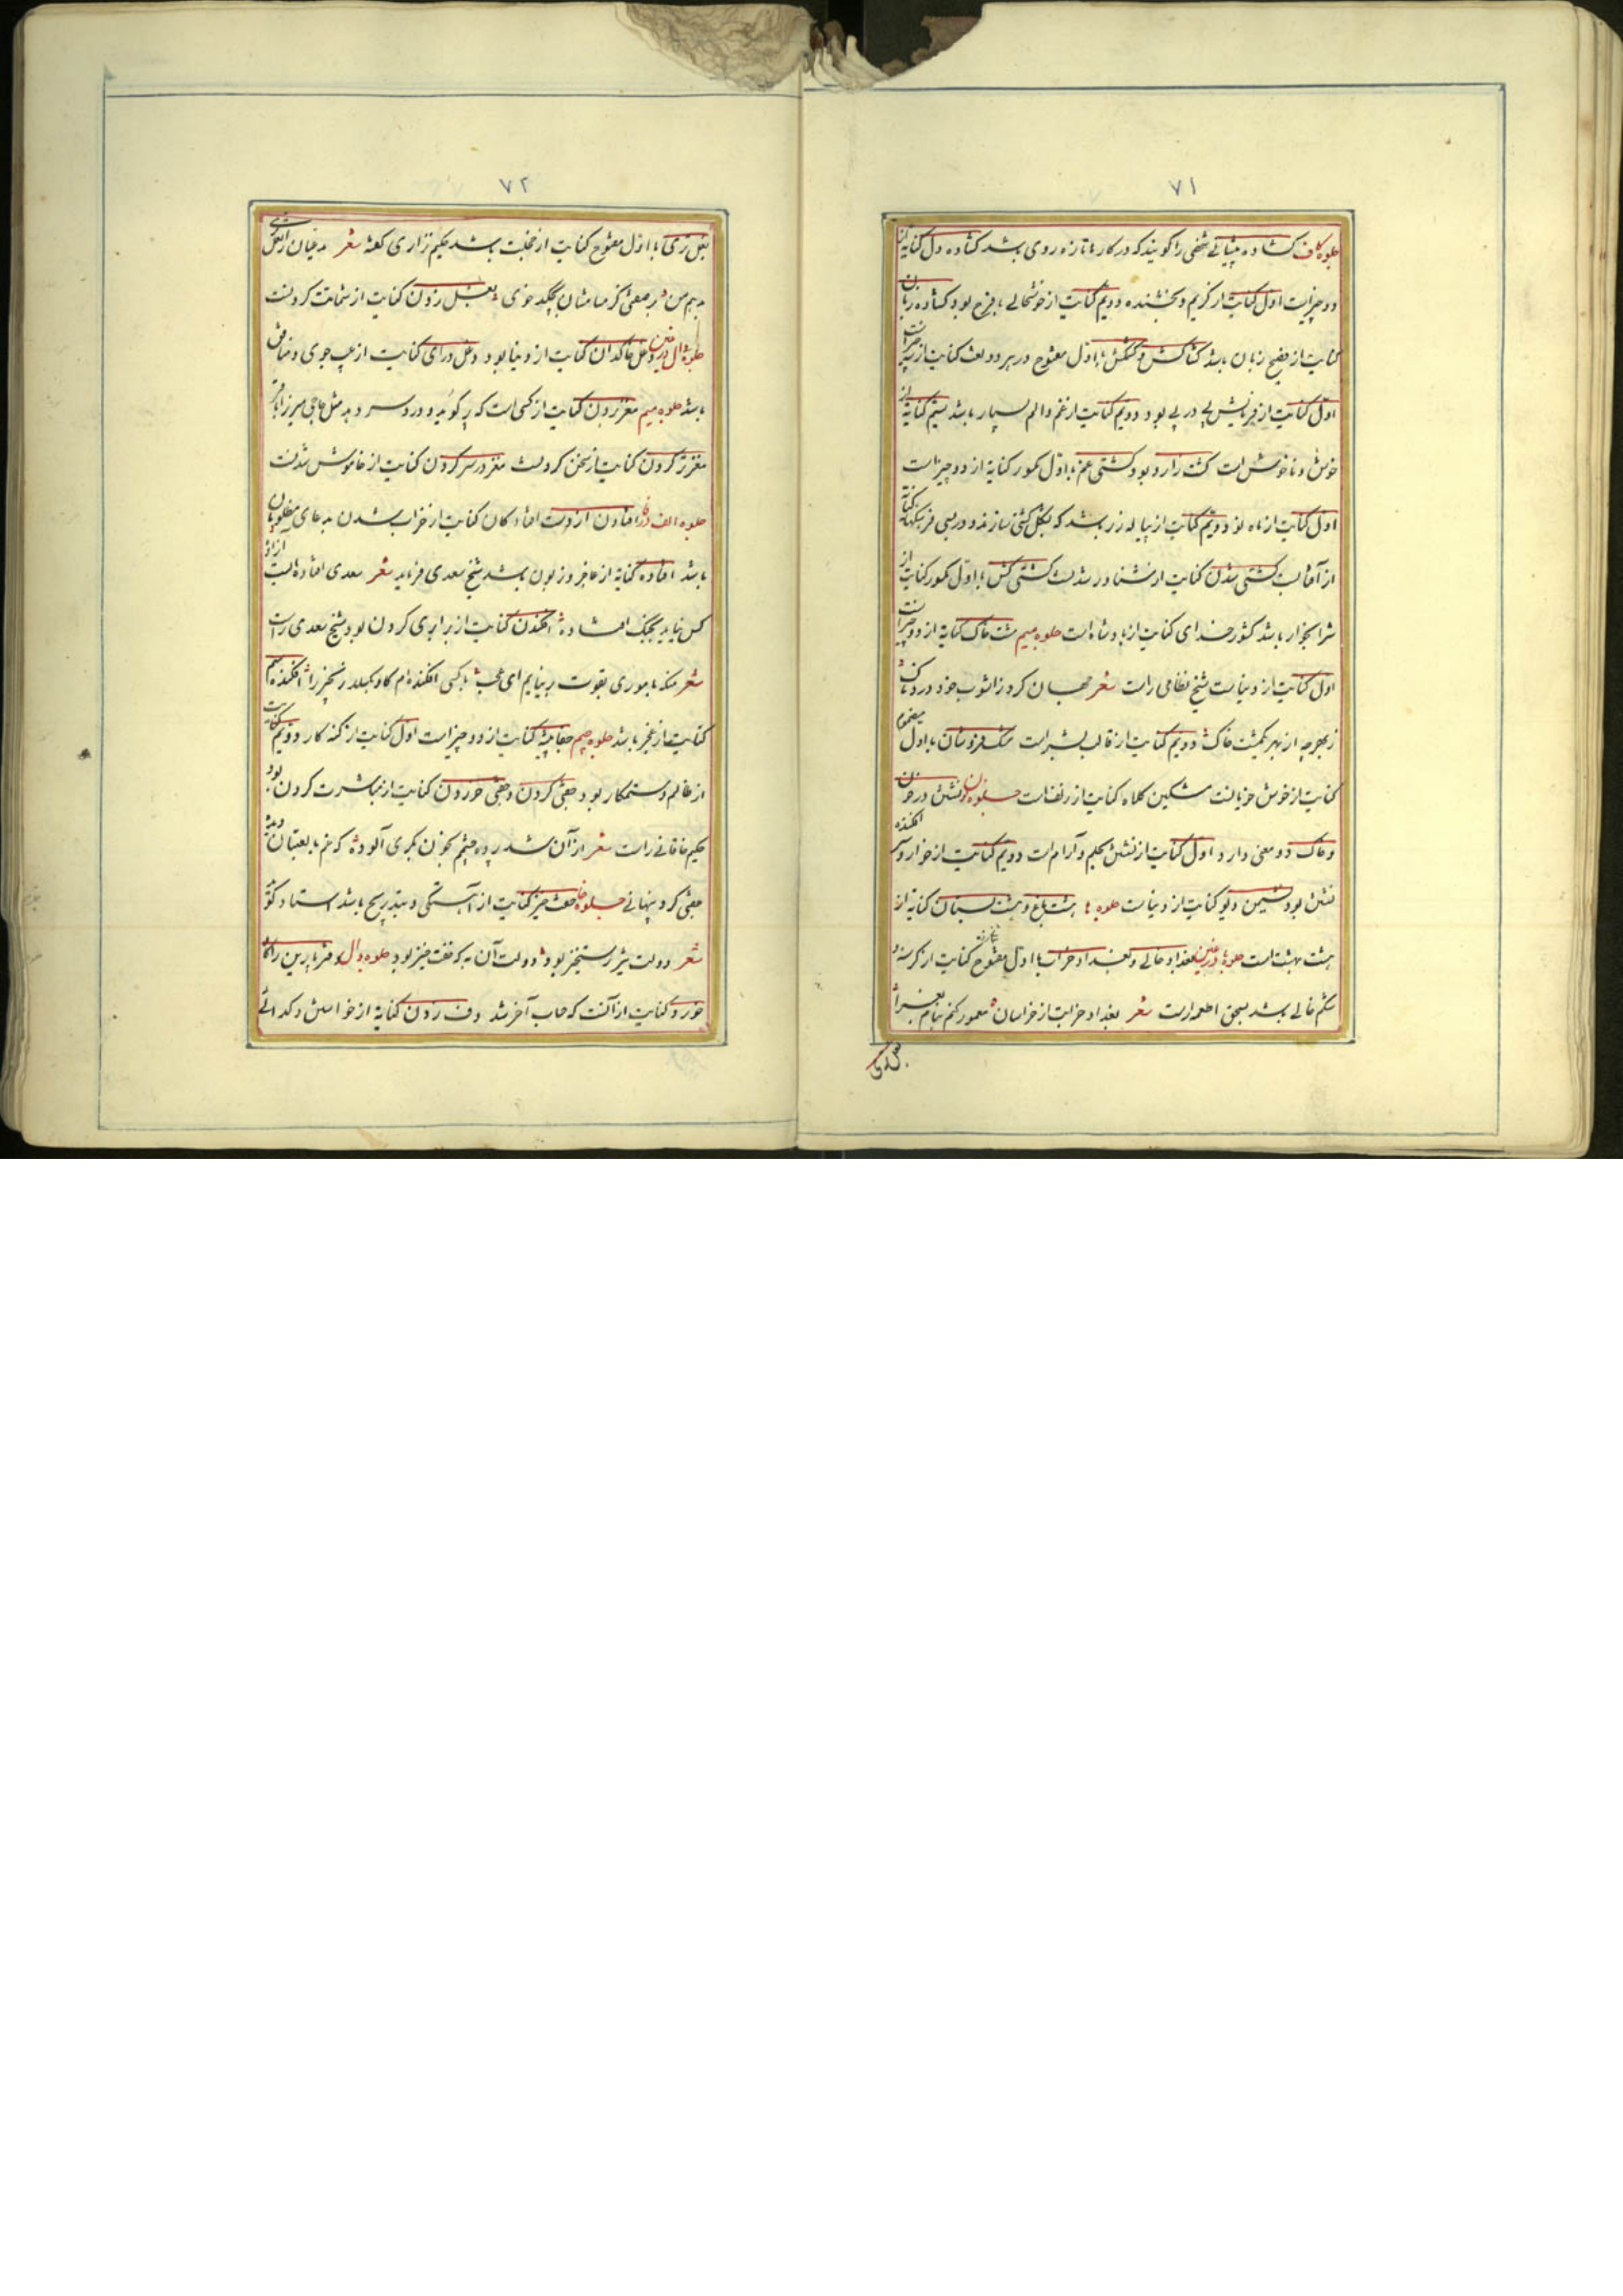 ۷۱
جلوه کاف کشاده پیشانی شخصی را گویند که در کارها تازه روی باشد کشاده دل کنایه از
دو چیز است اول کنایت از کریم و بخشنده دویم کنایت از خوشحالی و فرح بود کشاده زبان
کنایت از فصیح زبان باشد کشاکش و کشمکش با اول مفتوح در هر دو لغت کنایت از سه چیز است
اول کنایت از فرمایش پی در پی بود دویم کنایت از غم و الم بسیار باشد سیم کنایه از
خوش و ناخوش است کشت زار و بود کشتی غم با اول مکسور کنایه از دو چیز است
اول کنایت از ماه نو دویم کنایت از پیاله زر باشد که بشکل کشتی سازند و در بعضی فرهنگها کنایه
از آفتاب کشتی شدن کنایت از شناور شدنست کشتی کش با اول مکسور کنایت از
شرابخوار باشد کشور خدای کنایت از پادشاه است جلوه میم مشت خاک کنایه از دو چیز است
اول کنایت از دنیاست شیخ نظامی راست شعر جهان کرد ز آشوب خود دردناک
ز بهر چه از بهر یکمشت خاک دویم کنایت از قالب بشر است مشک فروشان با اول مضموم
کنایت از خوش خویانست مشکین کلاه کنایت از زلف است جلوه نون نشستن در خون
و خاک دو معنی دارد اول کنایت از نشستن بحلم و آرام است دویم کنایت از خوار و سر افکنده
نشستن بود نشیمن دیو کنایت از دنیاست جلوه ها هشت باغ و هشت بستان کنایه از
هشت بهشت است جلوه با در غین بغداد خالی و بغداد خراب با اول مفتوح کنایت از گرسنه و
شکم خالی باشد بسحق اطعمه راست شعر بغداد خرابت از خراسان معمور کنم بنام بغرا
بغل زدی
۷۲
بغل زدی با اول مفتوح کنایت از خجلت باشد حکیم نزاری گفته شعر مدعیان را بغل
جلوه دال در غین دغل خاکدان کنایت از دنیا بود و دغل درای کنایت از عیب جوی و منافق
باشد جلوه میم مغز بردن کنایت از کسی است که پر گوید و درد سر دهد مثل حاجی میرزا باقر
مغز تر کردن کنایت از سخن کردنست مغز در سر کردن کنایت از خاموش شدنست
جلوه الف در فا افتادن از دست افتادگان کنایت از خراب شدن بدعای مظلومان
باشد افتاده کنایه از عاجز و زبون باشد شیخ سعدی فرماید شعر سعدی افتاده ایست آزاده
کس نیاید بجنگ افتاده افکندن کنایت از برابری کردن بود شیخ سعدی راست
کنایت از عجز باشد جلوه جیم جفا پیشه کنایت از دو چیز است اول کنایت از گنه کار دویم کنایت
از ظالم و ستمکار بود جفتی کردن و جفتی خوردن کنایت از مباشرت کردن بود
حکیم خاقانی راست شعر از آن شد پرده چشمم بخون بکری آلوده که غم با لعبتان دیده
جفتی کرد پنهانی جلوه خا خفت خیز کنایت از آهستگی و بتدریج باشد استاد گوید
شعر دولت تیز رستخیز بود دولت آن به که خفت خیز بود جلوه دال دفتر پارین را گاو
خورد کنایت از آنست که حساب آخر شد دف زدن کنایه از خواهش و گدائی